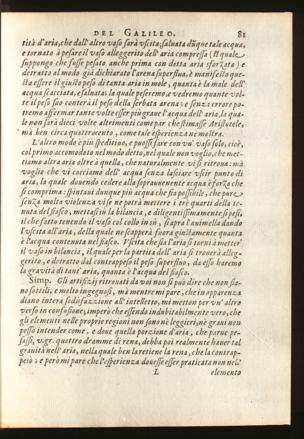 DEL GALILEO. 81
tità d'aria, che dall'altro vaso sarà vscita: saluata dũque tale acqua,
e tornato à pesare il vaso alleggerito dell'aria compressa (il quale
suppongo che fusse pesato anche prima con detta aria sforzata) e
detratto al modo già dichiarato l'arena superflua, è manifesto que-
sta essere il giusto peso di tanta aria in mole, quanta è la mole dell'
acqua scacciata, e saluata; la quale peseremo, e vedremo quante vol-
te il peso suo conterà il peso della serbata arena: e senza errore po-
tremo affermar tante volte esser più graue l'acqua dell'aria, la qua-
le non sarà dieci volte altrimenti come par che stimasse Aristotele,
mà ben circa quattrocento, come tale esperienza ne mostra.
L'altro modo è più speditiuo, e puossi fare con vn' vaso solo, cioè,
col primo accomodato nel modo detto, nel quale non voglio, che met-
tiamo altra aria oltre à quella, che naturalmente vi si ritroua: mà
voglio che vi cacciamo dell' acqua senza lasciare vscir punto di
aria, la quale douendo cedere alla soprauenente acqua è forza che
si comprima: spintaui dunque più acqua che sia possibile, che pur
senza molta violenza vi se ne potrà mettere i trè quarti della te-
nuta del fiasco, mettasi in su la bilancia, e diligentissimamente si pesi,
il che fatto tenendo il vaso col collo in sù, si apra l'animella dando
l'vscita all'aria, della quale ne scapperà fuora giustamente quanta
è l'acqua contenuta nel fiasco. Vscita che sia l'aria si torni à metter'
il vaso in bilancia, il quale per la partita dell'aria si trouerà alleg-
gerito, e detratto dal contrappeso il peso superfluo, da esso haremo
la grauità di tant' aria, quanta è l'acqua del fiasco.
Simp. Gli artifizij ritrouati da voi non si può dire che non sia-
no sottili, e molto ingegnosi, mà mentre mi pare, che in apparenza
diano intera sodisfazzione all'intelletto, mi metton per vn' altro
verso in confusione, imperò che essendo indubitabilmente vero, che
gli elementi nelle proprie regioni non sono nè leggieri, nè graui non
posso intender come, e doue quella porzione d'aria, che parue pe-
sasse, v. gr. quattro dramme di rena, debba poi realmente hauer tal
grauità nell'aria, nella quale ben la ritiene la rena, che la contrap-
pesò: e però mi pare che l'esperienza douesse esser praticata non nell'
L elemento